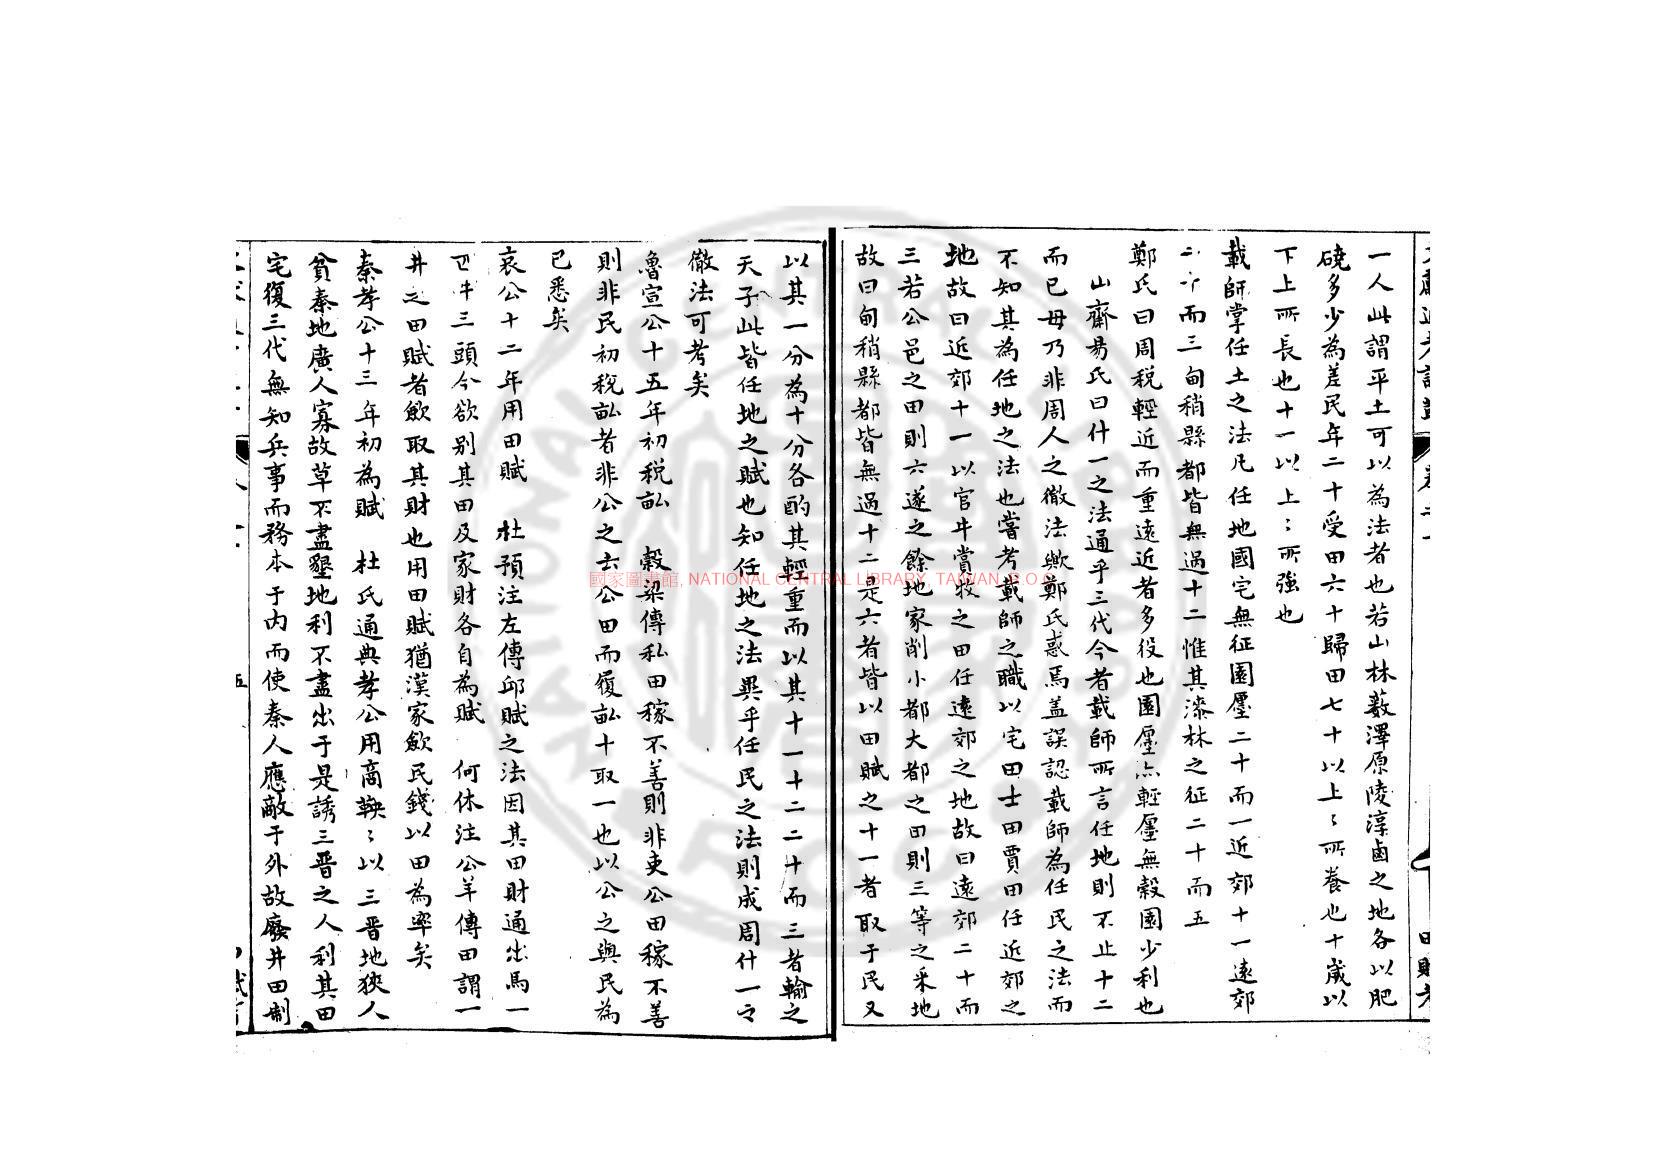 一人此謂平土可以為法者也若山林藪澤原陵淳鹵之地各以肥
磽多少為差民年二十受田六十歸田七十以上〻所養也十歲以
下上所長也十一以上〻所強也
載師掌任土之法凡任地國宅無征園廛二十而一近郊十一遠郊
二十而三甸稍縣都皆無過十二惟其漆林之征二十而五
鄭氏曰周稅輕近而重遠近者多役也園廛亦輕廛無穀園少利也
山齋易氏曰什一之法通乎三代今者載師所言任地則不止十二
而已毋乃非周人之徹法歟鄭氏惑焉盖誤認載師為任民之法而
不知其為任地之法也嘗考載師之職以宅田士田賈田任近郊之
地故曰近郊十一以官牛賞牧之田任遠郊之地故曰遠郊二十而
三若公邑之田則六遂之餘地家削小都大都之田則三等之采地
故曰甸稍縣都皆無過十二是六者皆以田賦之十一者取于民又
以其一分為十分各酌其輕重而以其十一十二二十而三者輸之
天子此皆任地之賦也知任地之法異乎任民之法則成周什一之
徹法可考矣
魯宣公十五年初税畝 穀梁傳私田稼不善則非吏公田稼不善
則非民初稅畝者非公之去公田而履畝十取一也以公之與民為
已悉矣
哀公十二年用田賦 杜預注左傳邱賦之法因其田財通出馬一
匹牛三頭今欲别其田及家財各自為賦 何休注公羊傳田謂一
井之田賦者歛取其財也用田賦猶漢家歛民錢以田為率矣
秦孝公十三年初為賦 杜氏通典孝公用商鞅〻以三晋地狹人
貧秦地廣人寡故草不盡墾地利不盡出于是誘三晋之人利其田
宅復三代無知兵事而務本于内而使秦人應敵于外故廢井田制
國家圖書館, NATIONAL CENTRAL LIBRARY, TAIWAN, R.O.C.